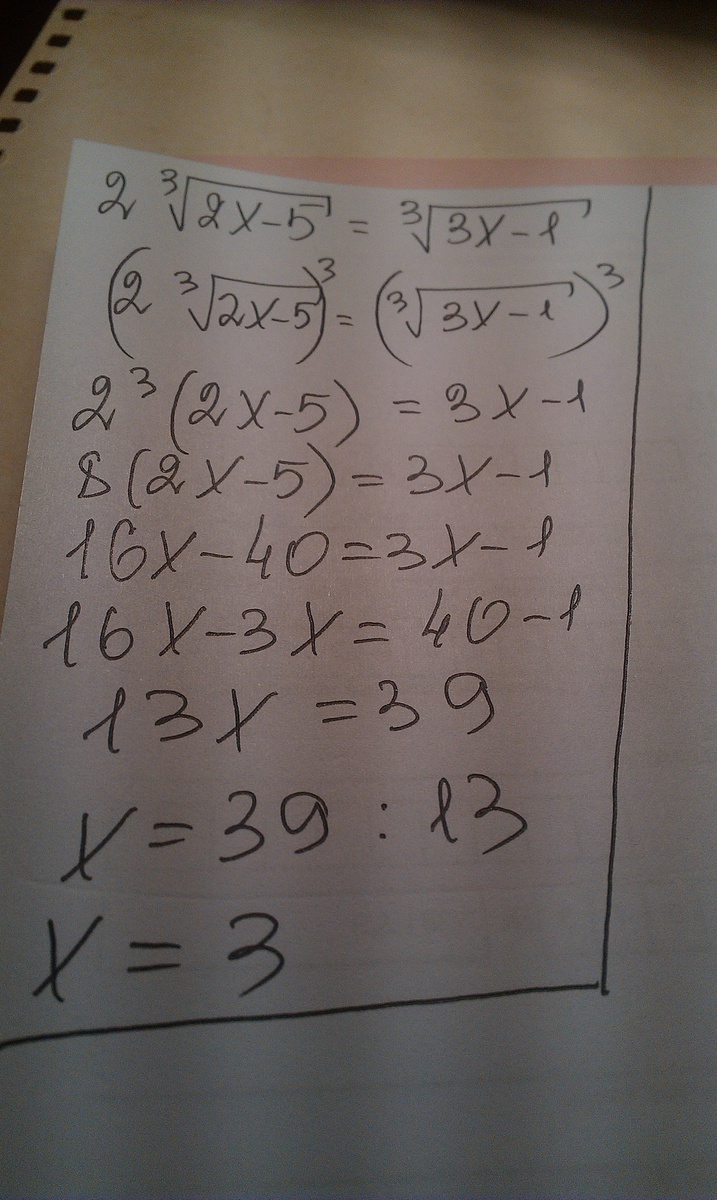 2 ∛(2x-5) = ∛(3x-1)
(2 ∛(2x-5))³ = (∛(3x-1))³
2³(2x-5) = 3x-1
8(2x-5) = 3x-1
16x-40=3x-1
16x-3x= 40-1
13x = 39
x = 39 : 13
x = 3